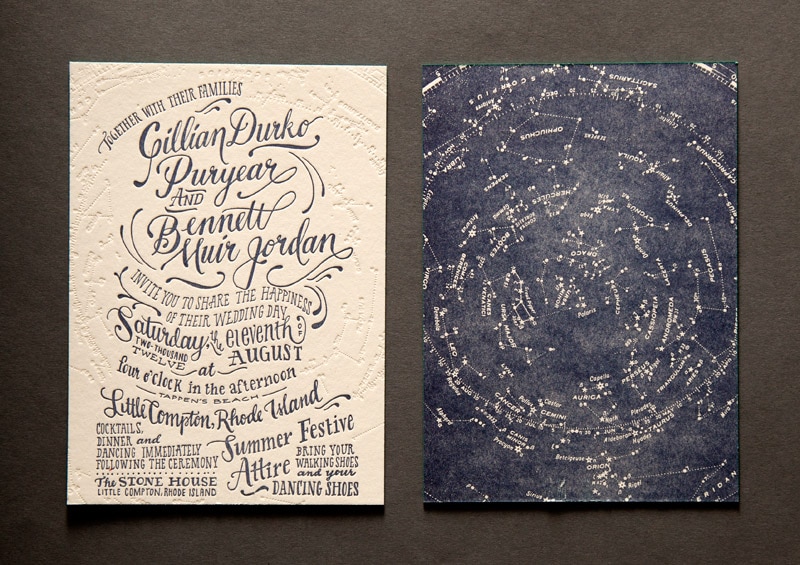 TOGETHER WITH THEIR FAMILIES
Gillian Durko
Puryear
AND
Bennett
Muir Jordan
INVITE YOU TO SHARE THE HAPPINESS
OF THEIR WEDDING DAY
Saturday, the eleventh OF
TWO-THOUSAND
TWELVE at AUGUST
four o'clock in the afternoon
TAPPEN'S BEACH
Little Compton, Rhode Island
COCKTAILS,
DINNER and
DANCING IMMEDIATELY
FOLLOWING THE CEREMONY
The STONE HOUSE
LITTLE COMPTON, RHODE ISLAND
Summer Festive
Attire
BRING YOUR
WALKING SHOES
and your
DANCING SHOES
SAGITTARIUS
SCORPIUS
OPHIUCHUS
CAPRICORNUS
AQUILA
LIBRA
HERCULES
CYGNUS
BOOTES
DRACO
PEGASUS
VIRGO
COMA
BERENICES
CEPHEUS
Polaris
CASSIOPEIA
ANDROMEDA
LEO
Capella
AURIGA
CANCER
GEMINI
Procyon
Aldebaran
Betelgeuse
ORION
Rigel
Sirius
ERIDA